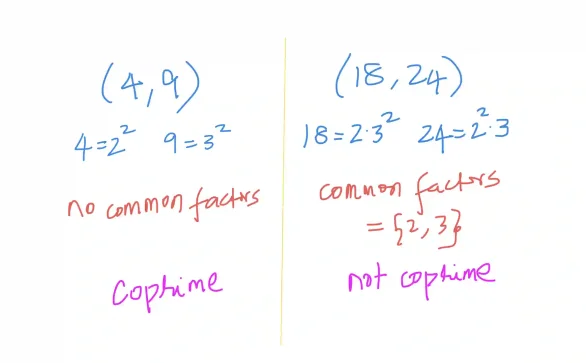 (4,9)
4=2² 9=3²
no common factors
coprime
(18,24)
18=2·3² 24=2²·3
common factors
={2,3}
not coprime